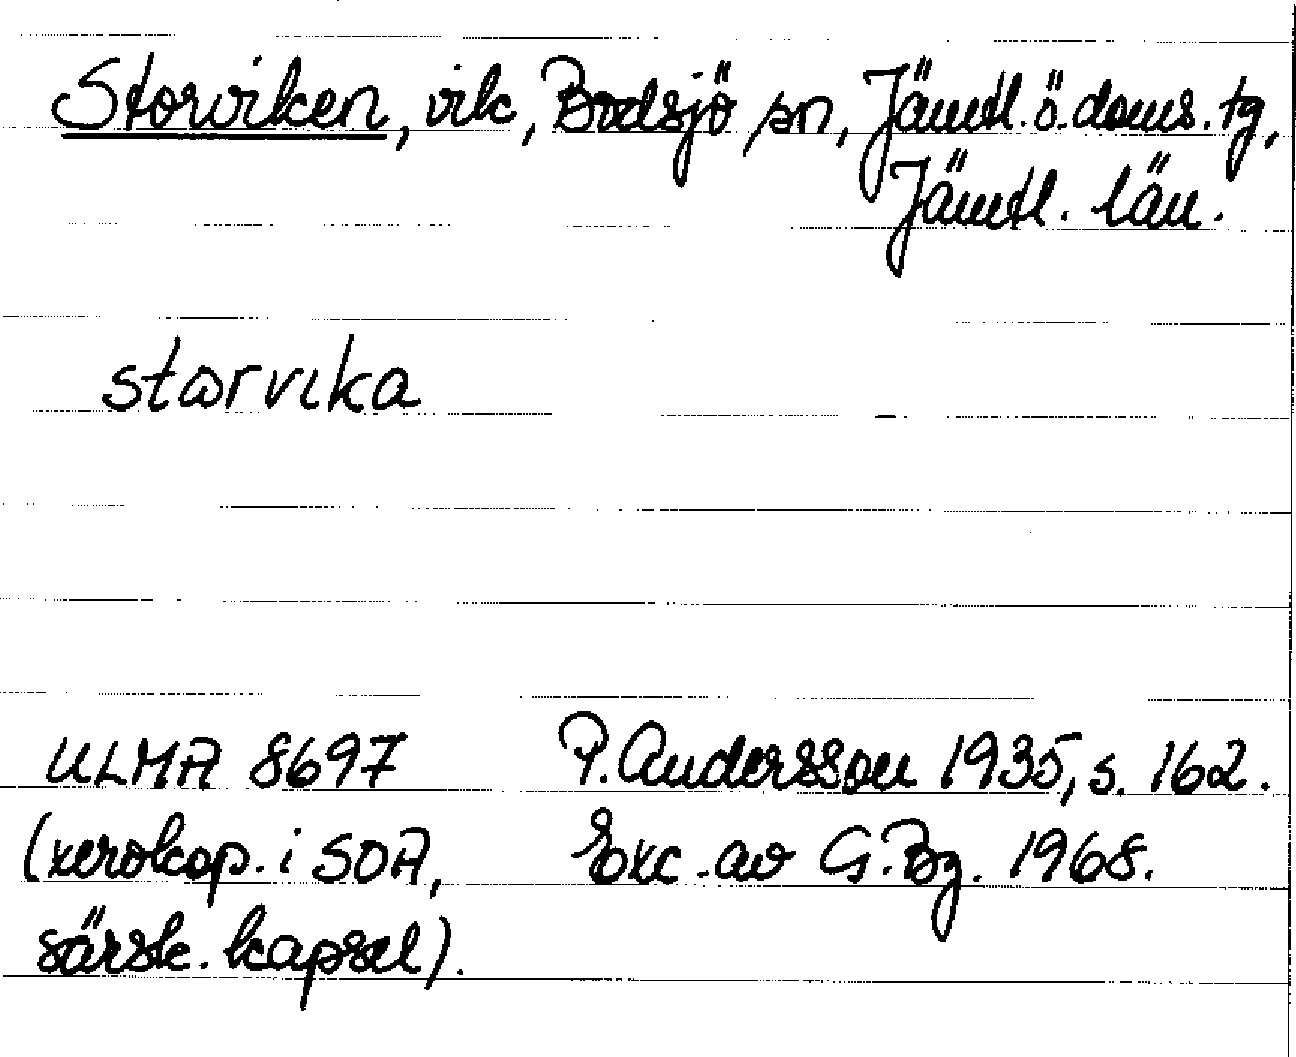 Storviken, vik, Bodsjö sn, Jämtl. ö. doms. tg,
Jämtl. län.
storvika
ULMA 8697
P. Andersson 1935, s. 162.
(xerokop. i SOA,
Exc. av G. Bg. 1968.
särsk. kapsel).